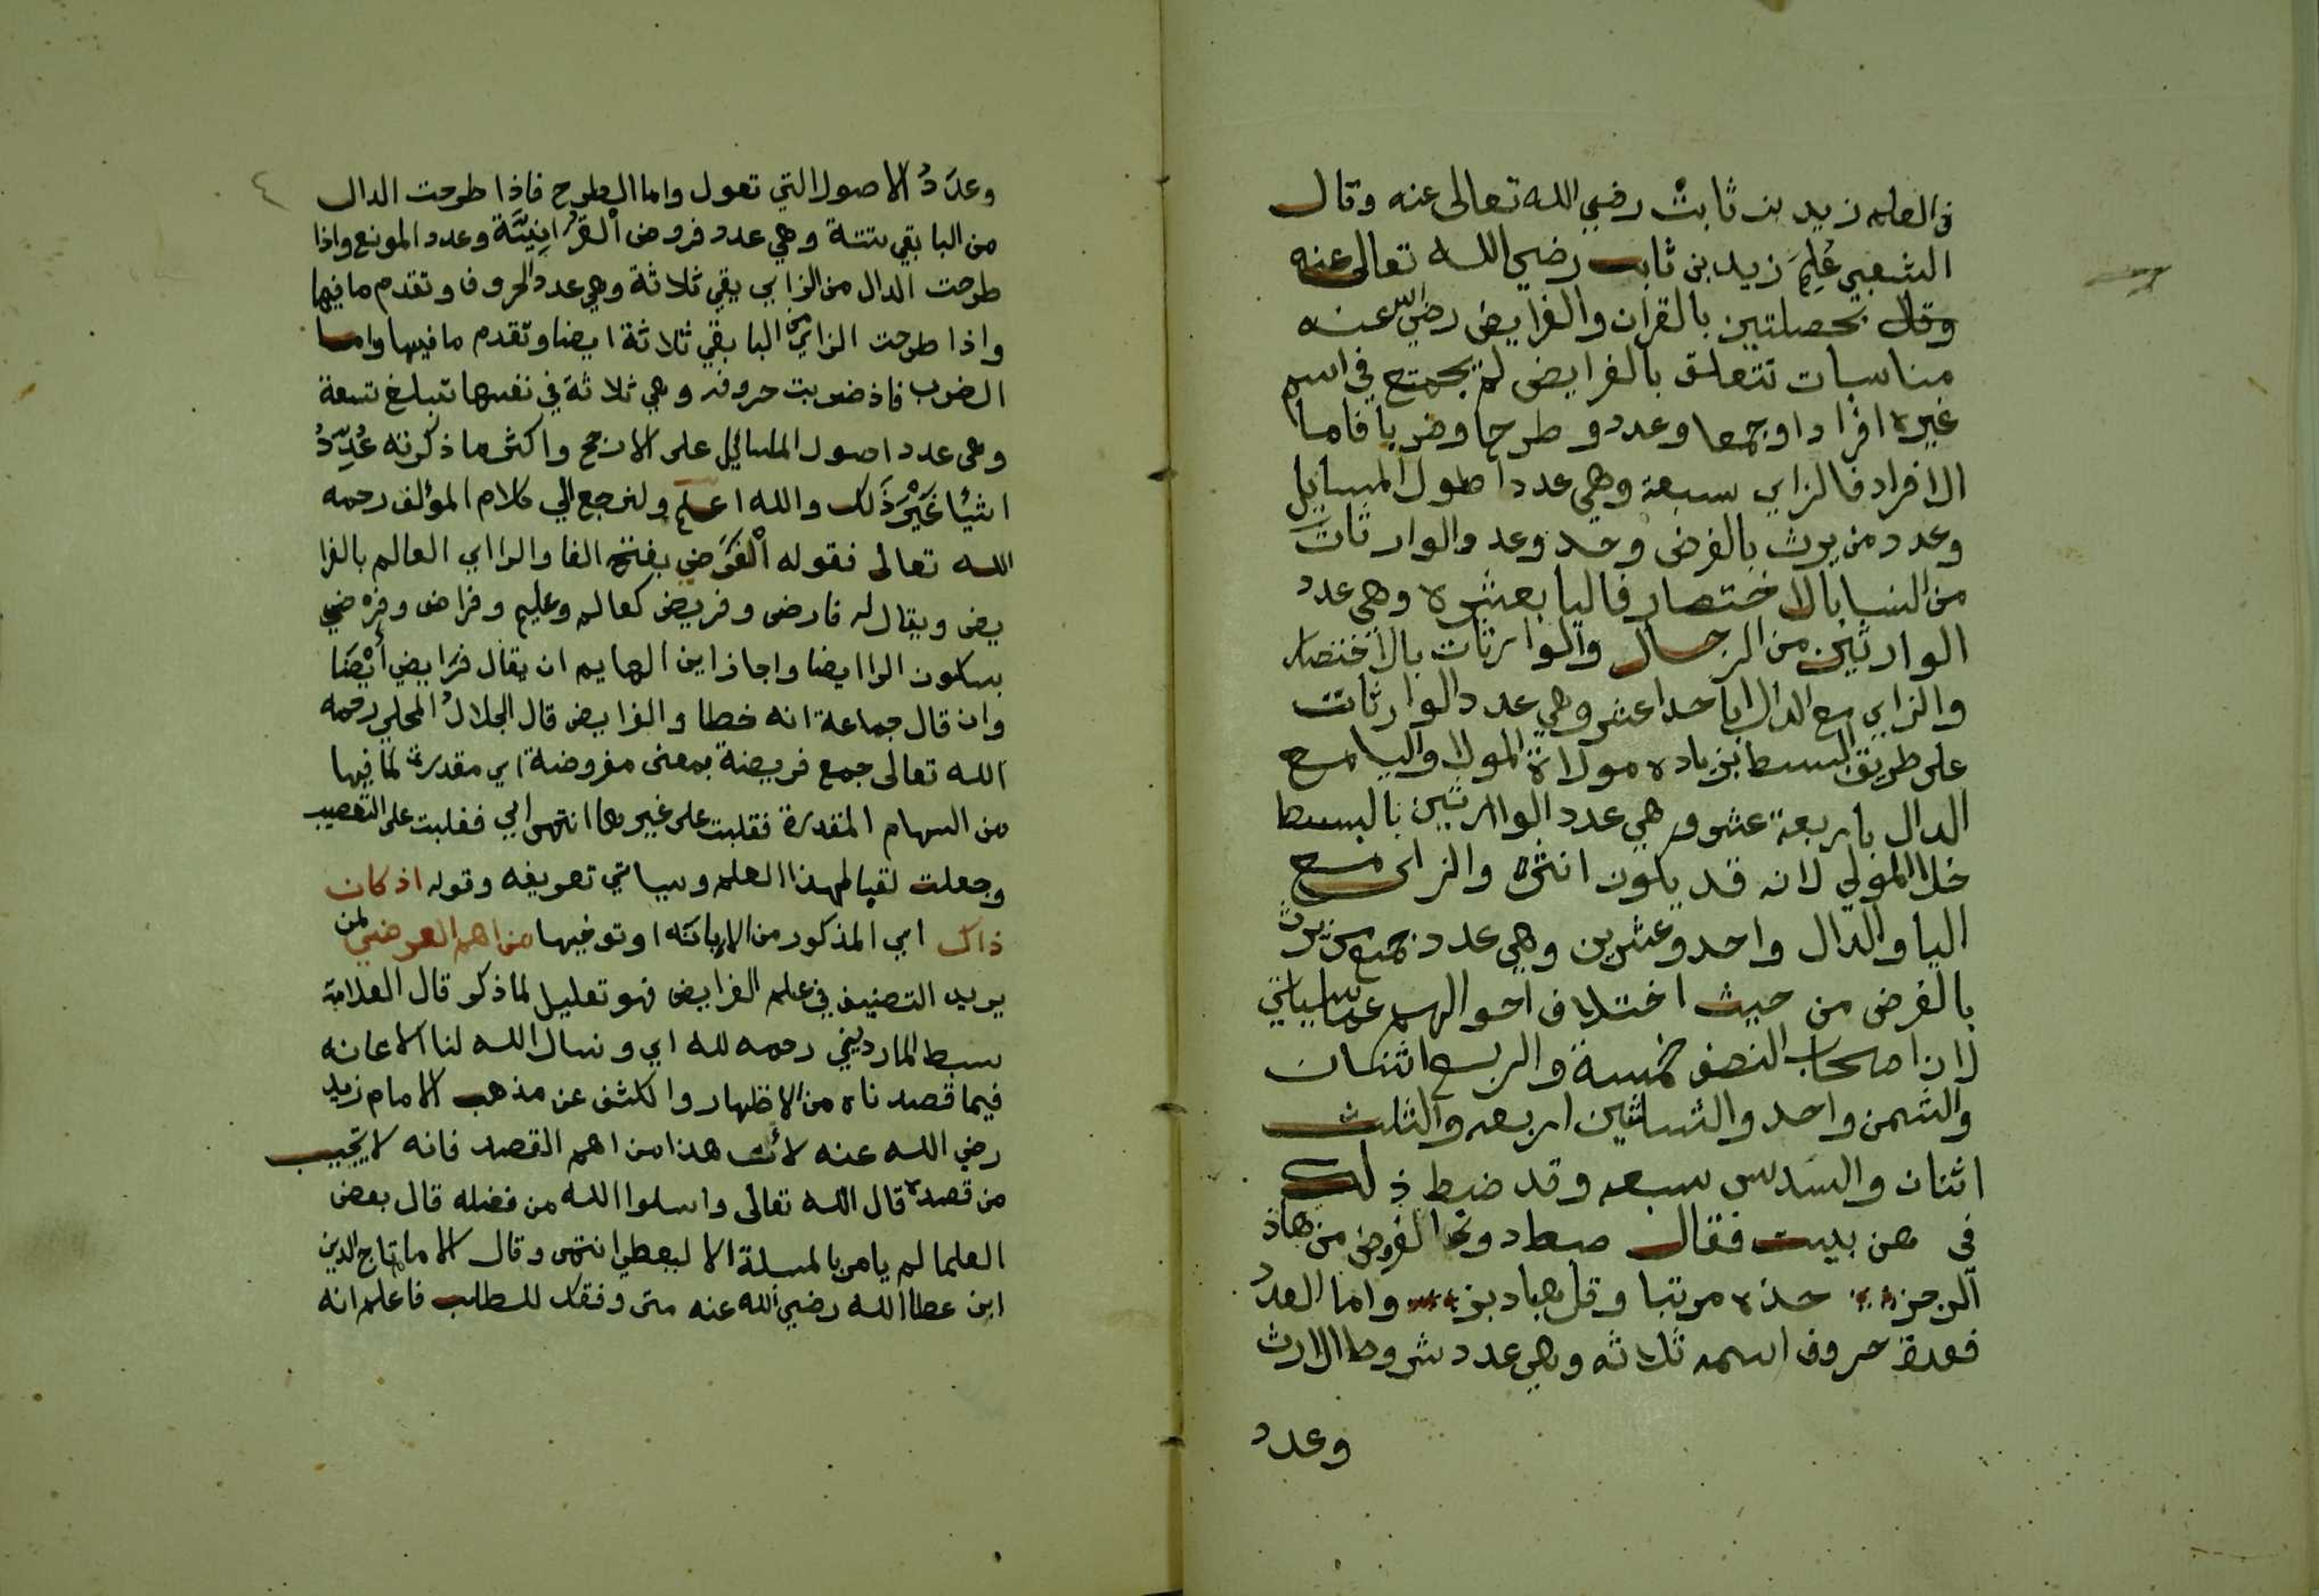 في العلم زيد بن ثابت رضي الله تعالى عنه وقال
الشعبي عُلِمَ زيد بن ثابت رضي الله تعالى عنه
وقال بخصلتين بالقران والفرايض رضي الله عنه
مناسبات تتعلق بالفرايض لم يجمتع في اسم
غيره افرادا وجمعا وعدد و طرحا وضربا فاما
الافراد فالزاي سبعة وهي عدد اطول المسايل
وعدد من يرث بالفرض وحد وعد والوارثات
من النسا بالاختصار فاليا بعشره وهي عدد
الوارثين من الرجال والوارثات بالاختصار
والزاي مع الدال باحدا عشر وهي عدد الوارثات
على طريق البسط بزياده مولاة المولا واليا مع
الدال باربعة عشر وهي عدد الوارثين بالبسط
خلا المولي لانه قد يكون انثى والزاى مع
اليا والدال واحد وعشرين وهي عدد جمع من يرث
بالفرض من حيث اختلاف احوالهم عما سياتي
لان اصحاب النصف خمسة والربع اثنان
والثمن واحد والثلثين اربعه والثلث
اثنان والسدس سبعه وقد ضبط ذلك
في هن بيت فقال ضبط ذوي الفروض من هاذ
الرجز حذه مرتبا وقل هبادبز واما العدد
فعدة حروف اسمه ثلاثه وهي عدد شروط الارث
وعدد
٤
وعدَدُ الاصول التي تعول واما الطرح فاذا طرحت الدال
من اليا بقي ستة وهي عدد فروض القرانيّة وعدد الموانع واذا
طرحت الدال من الزاي بقي ثلاثة وهي عدد الحروف وتقدم ما فيها
واذا طرحت الزاي من اليا بقي ثلاثة ايضا وتقدم ما فيها واما
الضرب فاذ ضربت حروفه وهي ثلاثة في نفسها تبلغ تسعة
وهى عدد اصول المسايل على الارجح واكثر ما ذكرته عُدِّدُ
اشيئا غَيْرَ ذَلك والله اعلم ولنرجع الي كلام المؤلف رحمه
الله تعالى فقوله الْفَرَضي بفتح الفا والرا اي العالم بالفرا
يض ويقال له فارض وفريض كعالم وعليم وفراض وفرْضي
بسكون الرا ايضا واجاز ابن الهايم ان يقال فرَايضي أيْضَا
وان قال جماعة انه خطا والفرايض قال الجلالُ المحلي رحمه
الله تعالى جمع فريضة بمعنى مفروضة اي مقدرة لما فيها
من السهام المقدرة فقلبت على غيرها انتهى اي فغلبت على التعصيب
وجعلت لقبا لهذا العلم وسياتي تعريفه وقوله اذ كان
ذاك اي المذكور من الاربانه اوتوفيها من اهم الغرضي لمن
يريد التصنيف في علم الفرايض فهو تعليل لما ذكر قال العلامة
سبط المارديني رحمه لله اي ونسال الله لنا الاعانه
فيما قصدناه من الاظهار والكشف عن مذهب الامام زيد
رضي الله عنه لأنَّ هذا من اهم القصد فانه لا يخيب
من قصده قال الله تعالى واسلوا الله من فضله قال بعض
العلما لم يامر بالمسلة الا ليعطي انتهى وقال الامام تاج الدين
ابن عطا الله رضي الله عنه متى وفقك للطلب فاعلم انه